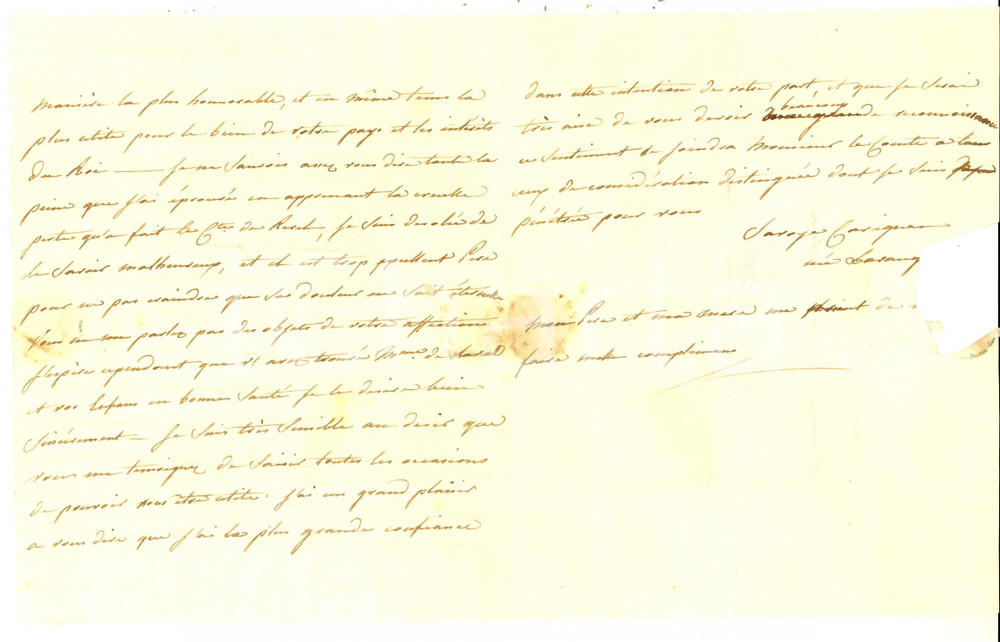 manière la plus honnorable, et en même tems la
plus utile pour le bien de votre pays et les intérêts
du Roi — je ne saurois assez vous dire toute la
peine que j'ai éprouvée en apprenant la cruelle
perte qu'a fait le Cte de Revel, je suis desolée de
le savoir malheureux, et il est trop excellent Pere
pour ne pas craindre que sa douleur ne soit éternelle
Vous ne me parlez pas des objets de votre affection
j'espère cependant que vs avez trouvée Mme de
et vos Enfans en bonne Santé je le desire bien
sincérement — je suis très sensible au desir que
vous me temoignez de saisir toutes les occasions
de pouvoir nous être utile. j'ai un grand plaisir
a vous dire que j'ai la plus grande confiance
dans cette intention de votre part, et que je serai
très aise de vous devoir beaucoup de reconnoissance
ce sentiment se joindra Monsieur le Comte a tous
ceux de considération distinguée dont je suis
pénétrée pour vous
Savoye Carignan
née
mon Pere et ma mere me de
faire mille complimens